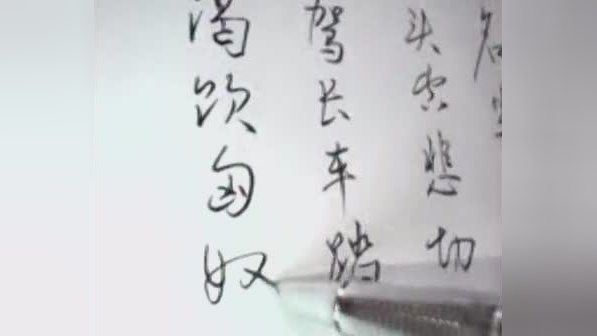 名
头空悲切
驾长车踏
渴饮匈奴